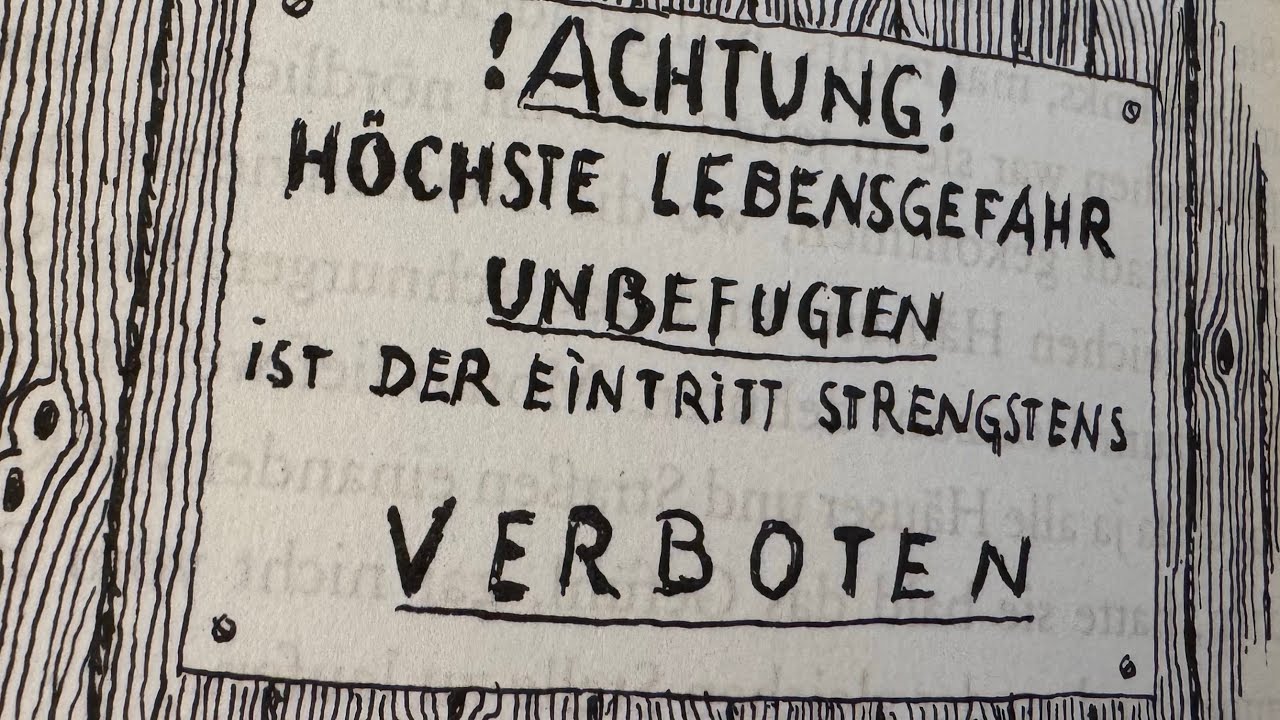 ! ACHTUNG!
HÖCHSTE LEBENSGEFAHR
UNBEFUGTEN
iST DER EiNTRiTT STRENGSTENS
VERBOTEN